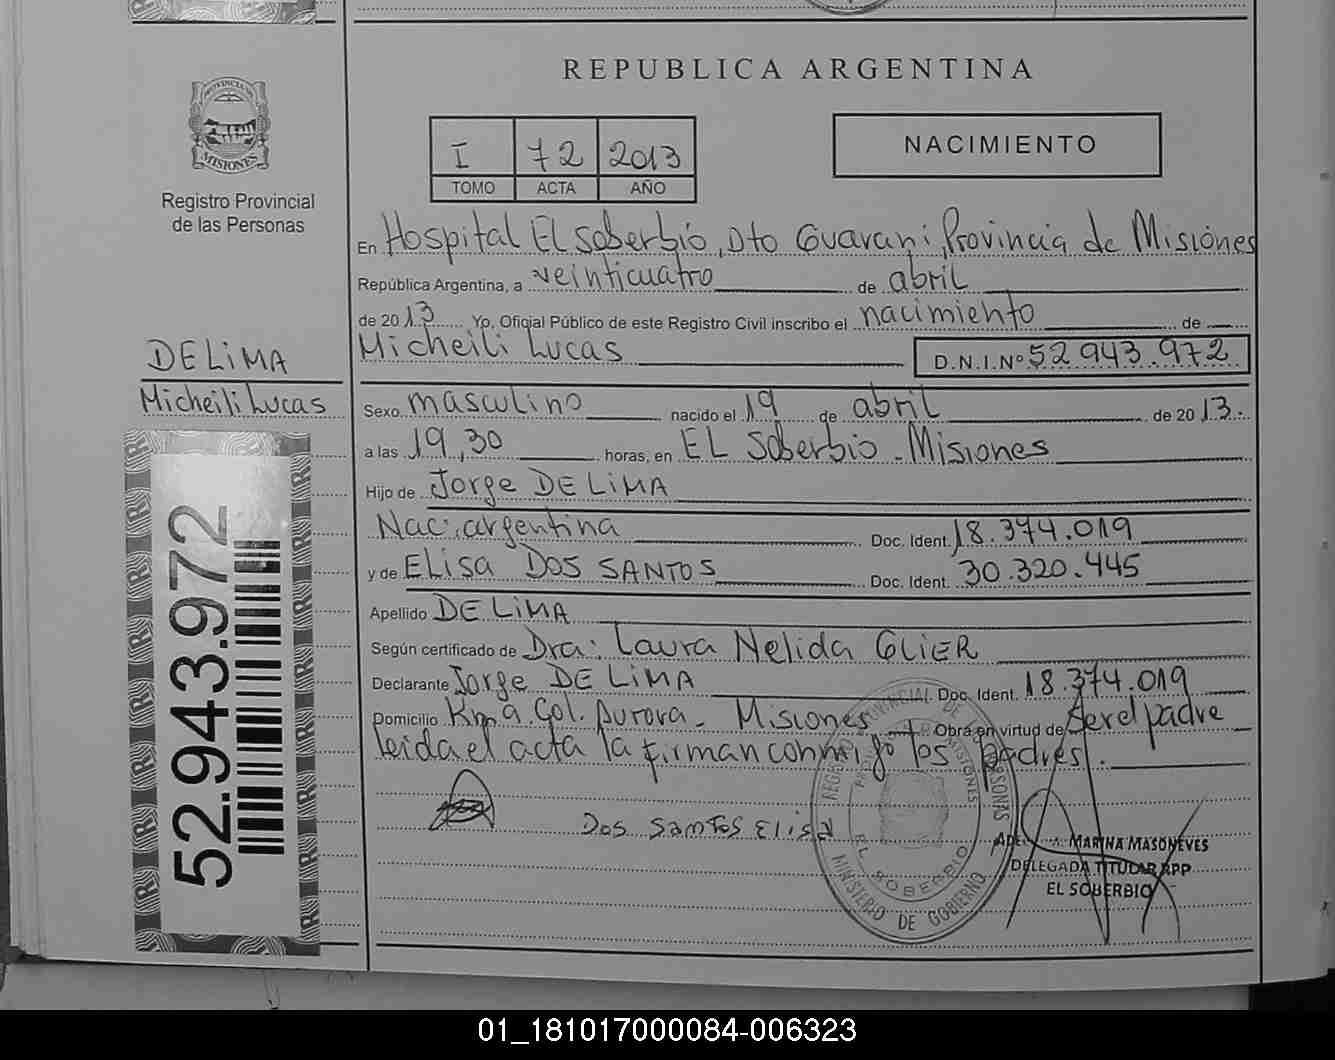 REPUBLICA ARGENTINA
PROVINCIA DE
MISIONES
Registro Provincial
de las Personas
I 72 2013
TOMO ACTA AÑO
NACIMIENTO
En Hospital El Soberbio, Dto Guarani, Provincia de Misiones
República Argentina, a veinticuatro de abril
de 2013 Yo, Oficial Público de este Registro Civil inscribo el nacimiento de
Micheili Lucas D.N.I.Nº 52.943.972
DE LiMA
Micheili Lucas
Sexo masculino nacido el 19 de abril de 2013.
a las 19,30 horas, en EL Soberbio - Misiones
Hijo de Jorge DE LiMA
Nac: argentina Doc. Ident. 18.374.019
y de ELiSa DOS SANTOS Doc. Ident. 30.320.445
Apellido DE LiMA
Según certificado de Dra: Laura Nelida GLIER
Declarante Jorge DE LiMA Doc. Ident. 18.374.019
Domicilio Km 9 Col. Aurora - Misiones Obra en virtud de Ser el padre
leida el acta la firman conmigo los padres.
Dos Santos Elisa
REGISTRO PROVINCIAL DE LAS PERSONAS
EL SOBERBIO
MINISTERIO DE GOBIERNO
MARINA MASONEVES
DELEGADA TITULAR RPP
EL SOBERBIO
52.943.972
01_181017000084-006323